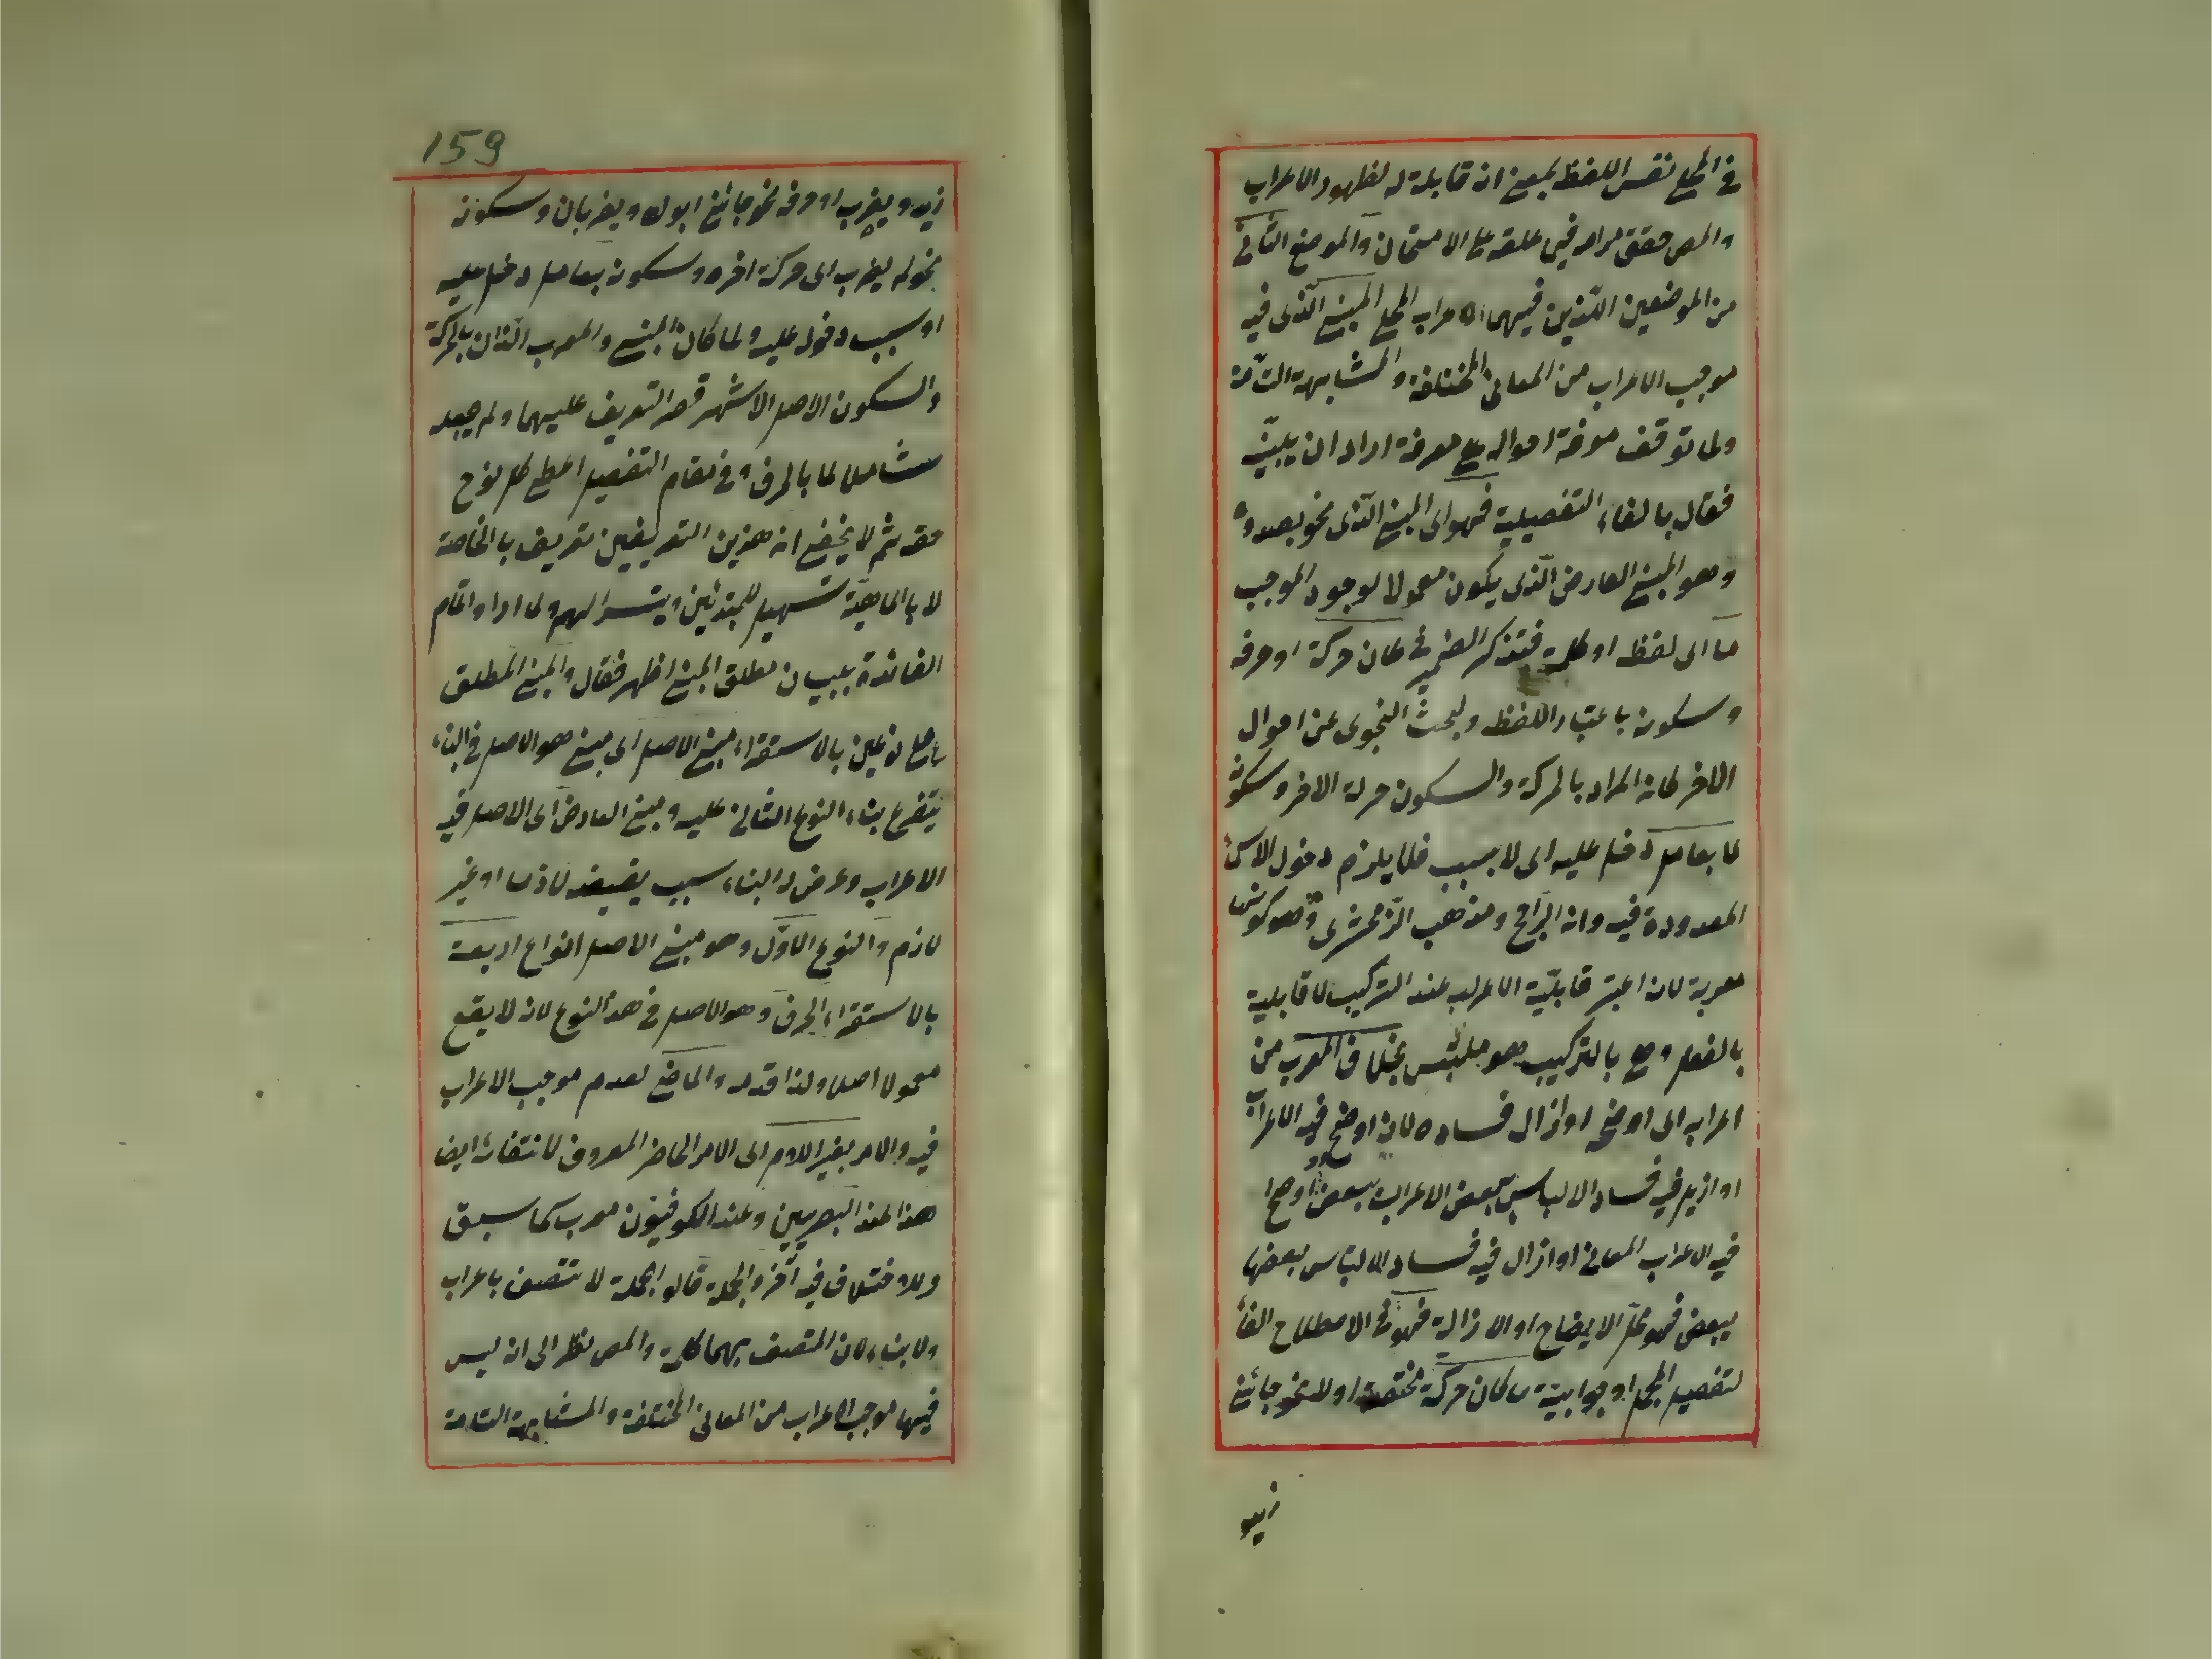 في المحلي نفس اللفظ بمعنى انه قابلة له لظهور الاعراب
والمص حقق مراده فيما علقه على الامتحان والموضع الثاني
من الموضعين اللذين فيهما الاعراب المحلي المبني الذي فيه
موجب الاعراب من المعاني المختلفة والمشابهة التامة
ولما توقف معرفة احواله على معرفة اراد ان يبينه
فقال بالفاء التفصيلية فهو اي المبني الذي نحو بصدده
وهو المبني العارض الذي يكون معمولا لوجود الموجب
ما اي لفظ او كلمة فتذكر الضمير في كان حركة او حرفه
وسكونه باعتبار اللفظ ولبحث النحوي عن احوال
الاخر كان المراد بالحركة والسكون حركة الاخر وسكونه
لا بعامل دخل عليه اي لا بسبب فلا يلزم دخول الاسماء
المعدودة فيه وانه الراجح ومذهب الزمخشري وهو كون
معربة لانه اعتبر قابلية الاعراب عند التركيب لا قابلية
بالفعل وهي بالتركيب وهو ملتبس بخلاف المعرب من
اعرابه اي اوضحه او ازال فساده لانه اوضح فيه الاعراب
او ازيل فيه فساد الالباس بعض الاعراب ببعض او اوضح
فيه الاعراب المعاني او ازال فيه فساد الالتباس بعضها
ببعض فهو محل الايضاح او الازالة فهو في الاصطلاح الفاء
لتفصيل المجمل او جوابية ما كان حركة مختصة اوله نحو جائني
زيد
159
زيد ويضرب او حرفه نحو جائني ابوك ويضربان وسكونه
نحو لم يضرب اي حركة اخره وسكونه بعامل دخل عليه
او سبب دخول عليه ولما كان المبني والمعرب اللذان بالحركة
والسكون الاصل الاشهر قصر التعريف عليهما ولم يجعله
شاملا لما بالحرف وفي مقام التفصيل اعطى كل نوع
حقه ثم لا يخفى ان هذين التعريفين تعريف بالخاصة
لا بالماهية تسهيل للمبتدئين ويتسر لهم ولما اراد اتمام
الفائدة ببيان مطلق المبني اظهر فقال والمبني المطلق
على نوعين بالاستقراء مبني الاصل اي مبني هو الاصل في البناء
يتفرع بناء النوع الثاني عليه ومبني العارض اي الاصل فيه
الاعراب وعرض له البناء سبب يقتضيه لازما او غير
لازم والنوع الاول وهو مبني الاصل انواع اربعة
بالاستقراء الحرف وهو الاصل في هذا النوع لانه لا يقع
معمولا اصلا ولذا قدمه والماضي لعدم موجب الاعراب
فيه والامر بغير اللام اي الامر الحاضر المعروف لانتفائه ايضا
هذا عند البصريين وعند الكوفيون معرب كما سبق
وللاختلاف فيه اخره والجملة قالوا الجملة لا تتصف باعراب
ولا بناء لان المتصف بهما كلمة والمص نظر الى انه ليس
فيها موجب الاعراب من المعاني المختلفة والمشابهة التامة